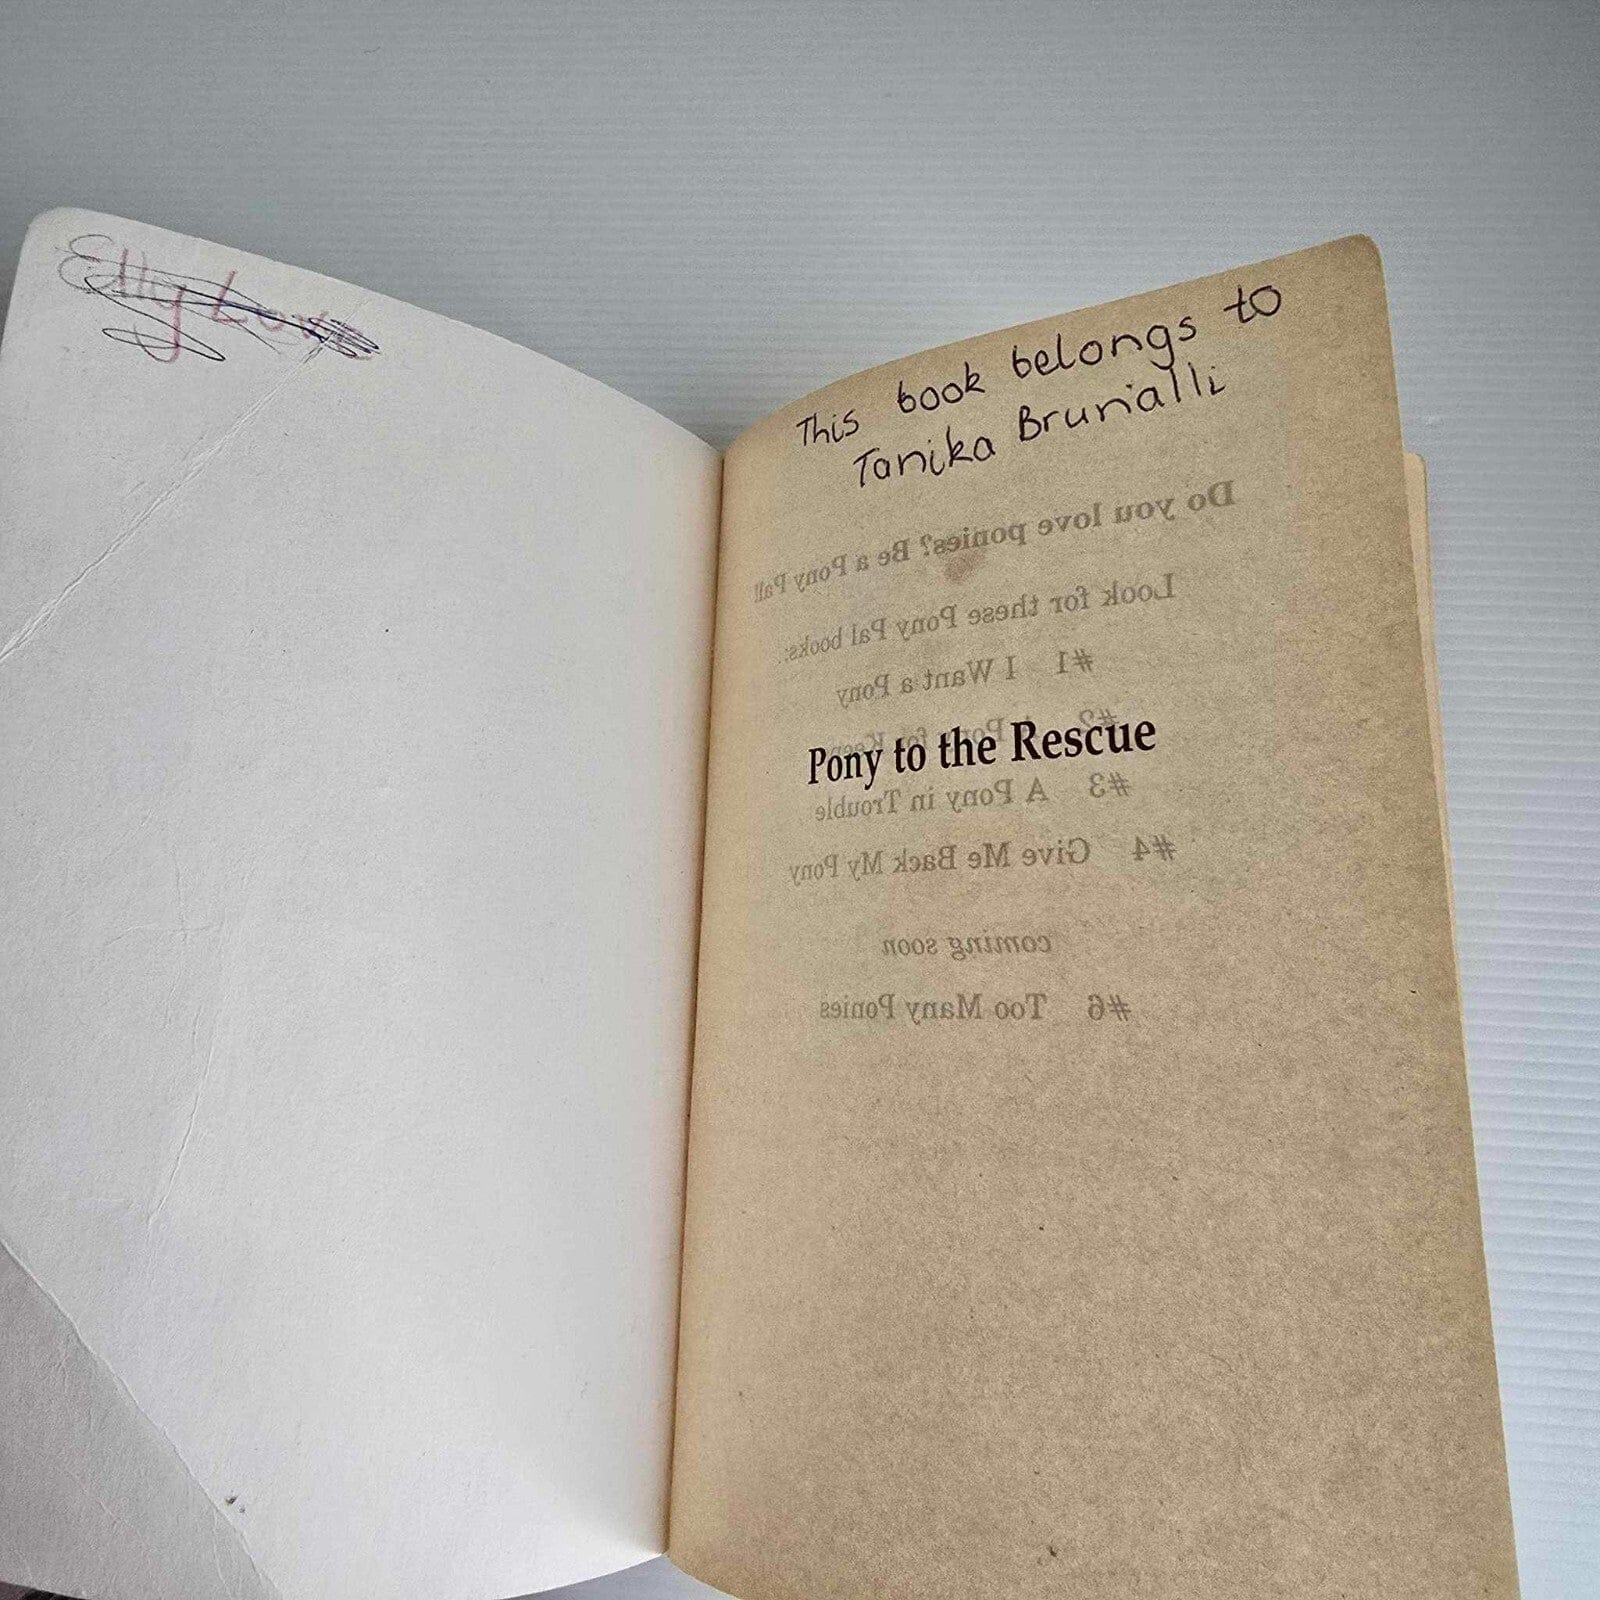 Elly Love
This book belongs to
Tanika Brunialli
Do you love ponies? Be a Pony Pal!
Look for these Pony Pal books:
#1 I Want a Pony
#2 A Pony for Keeps
Pony to the Rescue
#3 A Pony in Trouble
#4 Give Me Back My Pony
coming soon
#6 Too Many Ponies